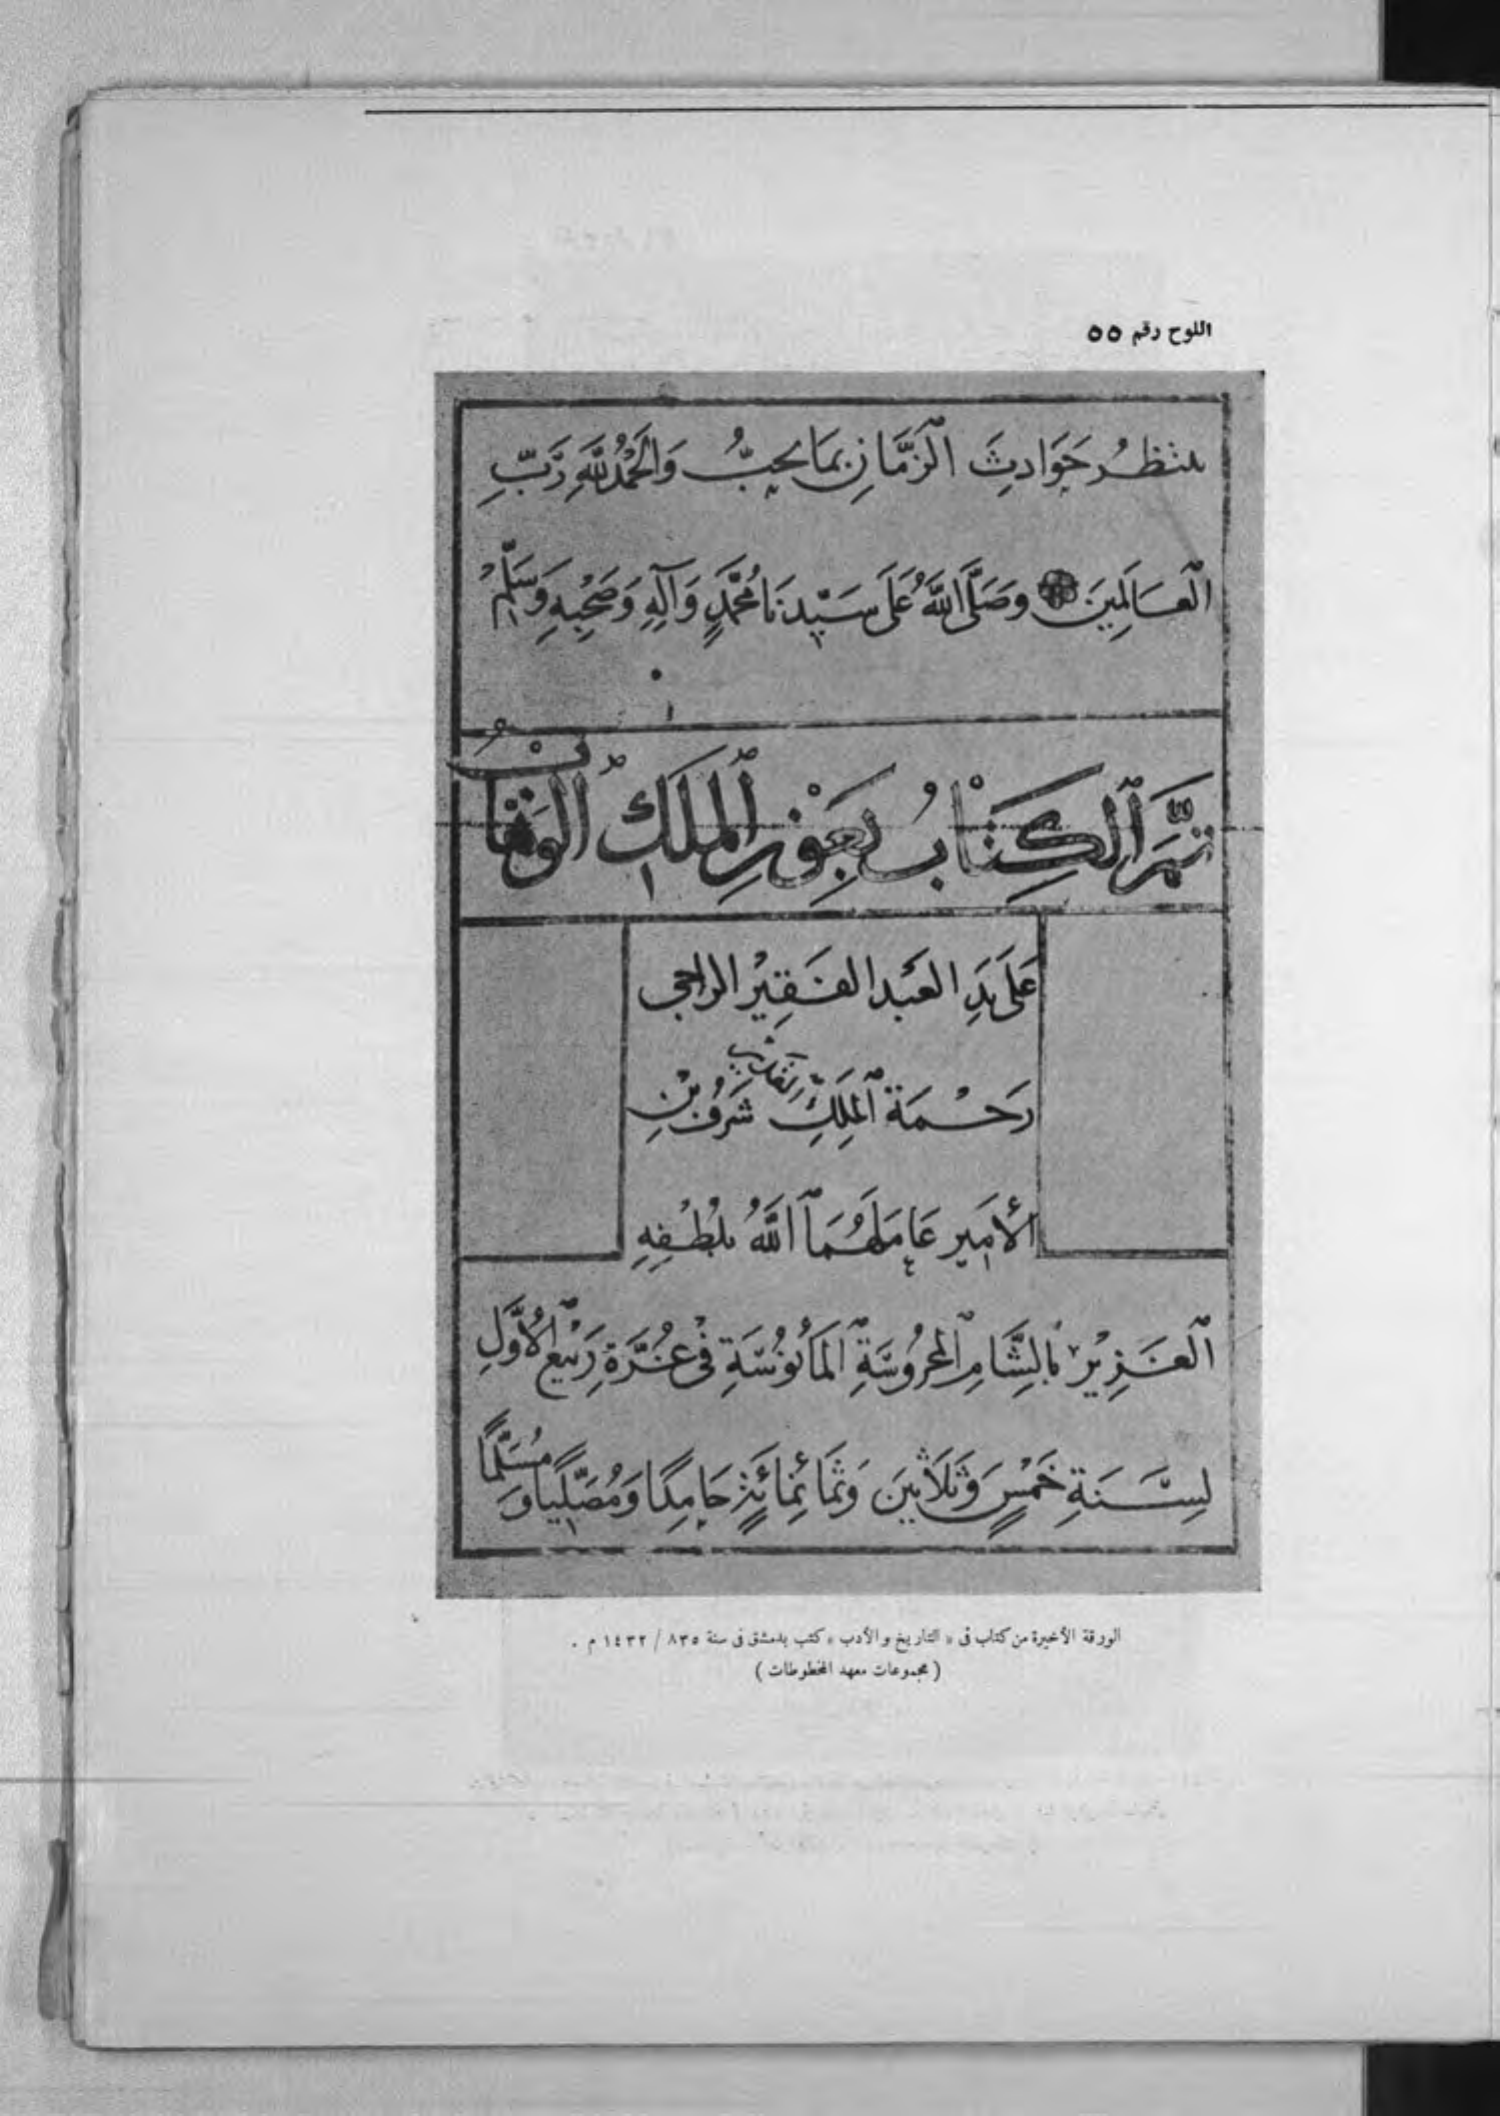 اللوح رقم ٥٥
ينتظر حَوَادِثَ الزَّمَانِ بمَا يحبُّ وَالحَمْدُ للَّهِ رَبِّ
العَالَمِينَ وصَلَّى اللَّهُ عَلَى سَيِّدِنَا مُحَمَّدٍ وَآلِهِ وَصَحْبِهِ وَسَلَّمْ
تَمَّ الكِتَابُ بِعَوْنِ المَلِكِ
عَلَى يَدِ العَبْدِ الفَقِيْرِ الراجي
رَحْمَةَ المَلِكِ شَرَفُ بْنِ
الأَمِيرِ عَامَلَهُمَا اللَّهُ بلُطْفِهِ
العَزِيْزِ بالشَّامِ المَحْرُوسَةِ المَأْنُوْسَةِ فْي غُرَّةِ رَبيْعِ الأَوَّلِ
لِسَنَةِ خَمْسٍ وَثَلَاثِينَ وَثَمَانِمَائَةٍ حَامِدًا وَمُصَلِّيًا وَمُسَلِّمًا
الورقة الأخيرة من كتاب فى « التاريخ والأدب » كتب بدمشق فى سنة ٨٣٥ / ١٤٣٢ م .
( مجموعات معهد المخطوطات )